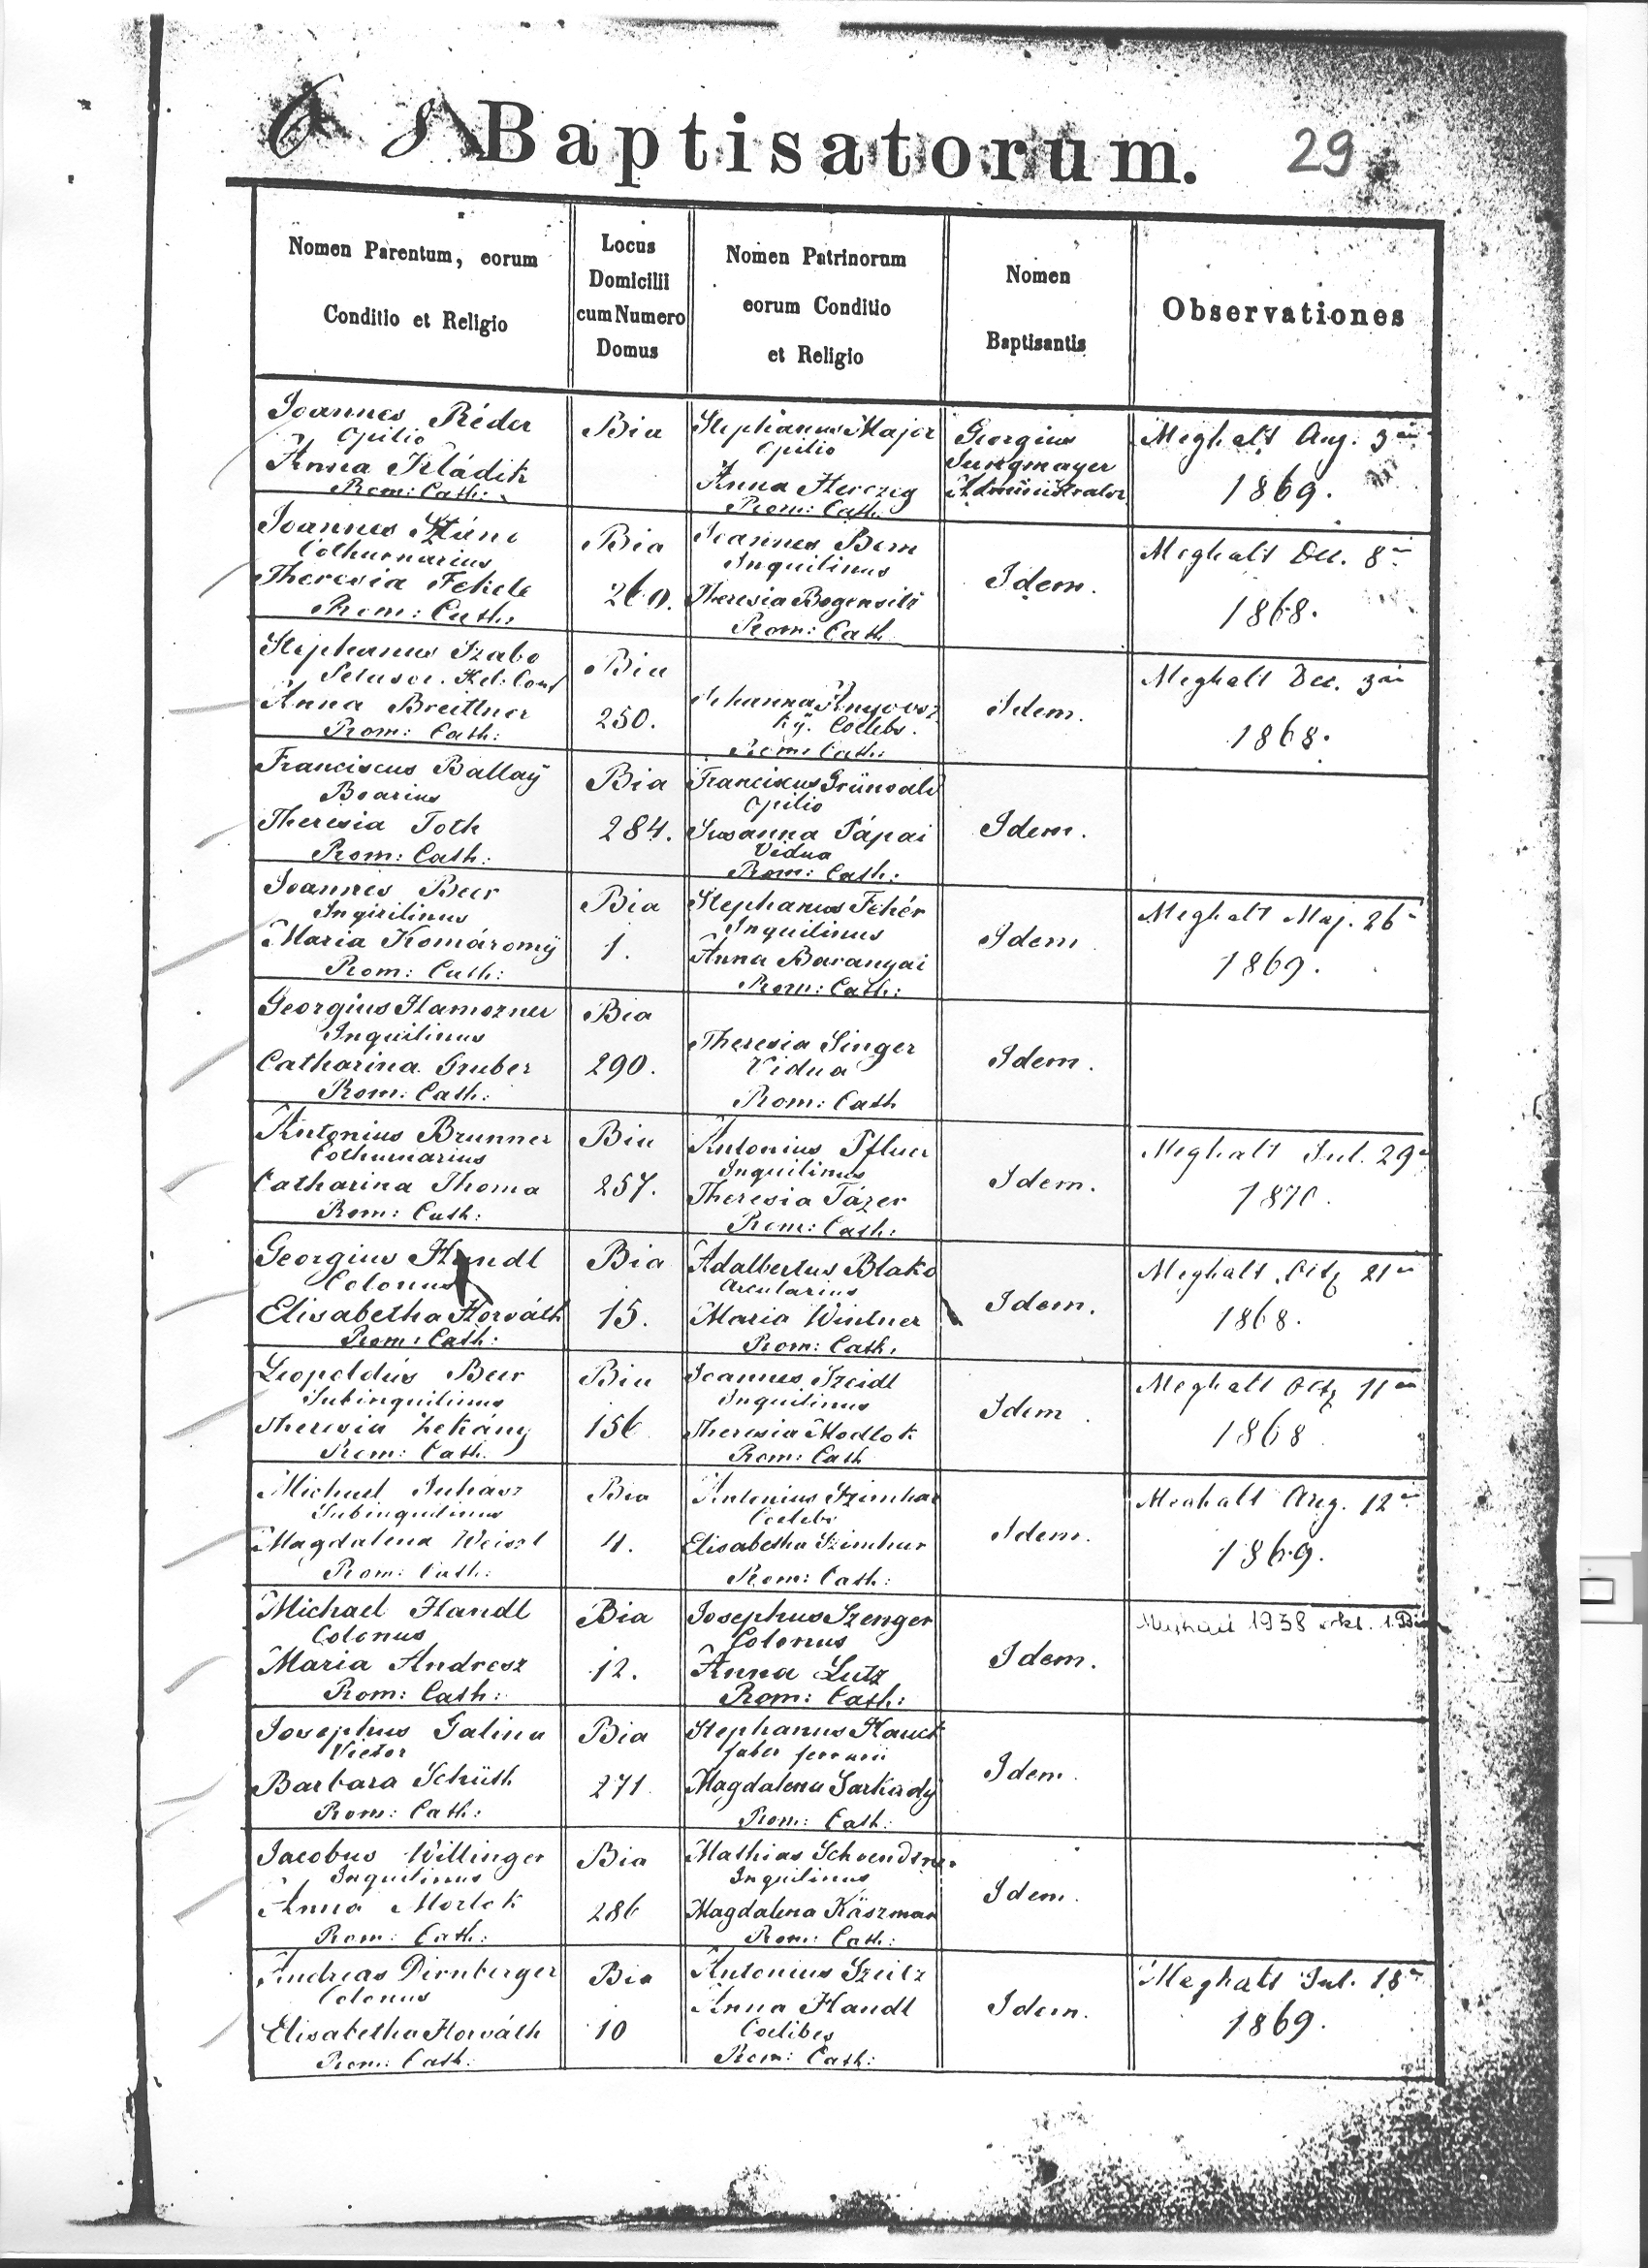 Baptisatorum. 29
Nomen Parentum, eorum
Conditio et Religio
Locus
Domicilii
cum Numero
Domus
Nomen Patrinorum
eorum Conditio
et Religio
Nomen
Baptisantis
Observationes
Joannes Réder
Opilio
Anna Kládik
Rom: Cath:
Bia
Stephanus Major
Opilio
Anna Herczeg
Rom: Cath
Georgius
Jungmayer
Administrator
Meghalt Aug. 3án
1869.
Joannes
Cothurnarius
Theresia Fekete
Rom: Cath:
Bia
260.
Joannes Bem
Inquilinus
Theresia
Rom: Cath
Idem.
Meghalt Dec. 8
1868.
Stephanus Szabo
Hel: Conf
Anna Breittner
Rom: Cath:
Bia
250.
Coelebs.
Rom: Cath:
Idem.
Meghalt Dec. 3án
1868.
Franciscus Ballaÿ
Boarius
Theresia Toth
Rom: Cath:
Bia
284.
Franciscus Grünvald
Opilio
Susanna Pápai
Vidua
Rom: Cath:
Idem.
Joannes Beer
Inquilinus
Maria Komáromÿ
Rom: Cath:
Bia
1.
Stephanus Fehér
Inquilinus
Anna Baranyai
Rom: Cath:
Idem.
Meghalt Maj. 26
1869.
Georgius Hamozner
Inquilinus
Catharina Gruber
Rom: Cath:
Bia
290.
Theresia Singer
Vidua
Rom: Cath
Idem.
Antonius Brunner
Cothurnarius
Catharina Thoma
Rom: Cath:
Bia
257.
Antonius
Inquilinus
Theresia Tázer
Rom: Cath:
Idem.
Meghalt Jul. 29
1870.
Georgius Handl
Colonus
Elisabetha Horváth
Rom: Cath:
Bia
15.
Adalbertus Blako
Arcularius
Maria Wintner
Rom: Cath.
Idem.
Meghalt 21
1868.
Leopoldus Beer
Subinquilinus
Theresia Zekány
Rom: Cath.
Bia
156
Joannes Szeidl
Inquilinus
Theresia Modlok
Rom: Cath
Idem.
Meghalt 11
1868
Michael Juhász
Subinquilinus
Magdalena Weiszl
Rom: Cath:
Bia
4.
Antonius
Coelebs
Elisabetha
Rom: Cath:
Idem.
Meghalt Aug. 12
1869.
Michael Handl
Colonus
Maria Andresz
Rom: Cath:
Bia
12.
Josephus Szenger
Colonus
Anna Lutz
Rom: Cath:
Idem.
Meghalt 1938 okt. 1. Bia
Josephus Galina
Vietor
Barbara Schüth
Rom: Cath:
Bia
271.
Stephanus Hauck
faber ferrarii
Magdalena Sarkadÿ
Rom: Cath:
Idem.
Jacobus Willinger
Inquilinus
Anna Morlok
Rom: Cath:
Bia
286
Mathias
Inquilinus
Magdalena Käszman
Rom: Cath:
Idem.
Andreas Dirnberger
Colonus
Elisabetha Horváth
Rom: Cath:
Bia
10
Antonius Szeitz
Anna Handl
Coelibes
Rom: Cath:
Idem.
Meghalt Jul. 18
1869.